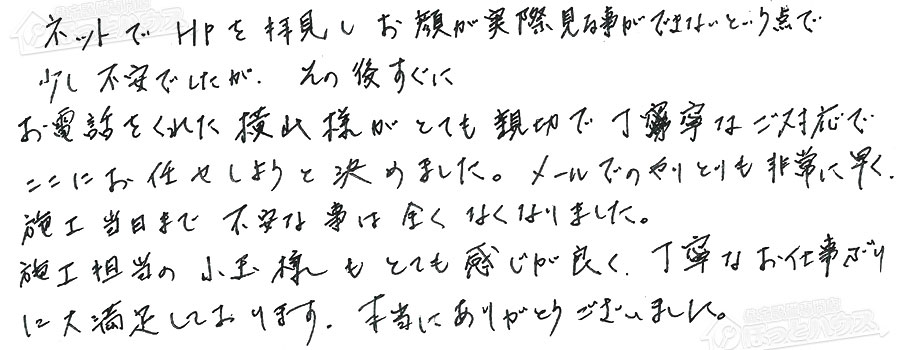 ネットでHPを拝見しお顔が実際見る事ができないという点で
少し不安でしたが、その後すぐに
お電話をくれた横山様がとても親切で丁寧なご対応で
ここにお任せしようと決めました。メールでのやりとりも非常に早く、
施工当日まで不安な事は全くなくなりました。
施工担当の小玉様もとても感じが良く、丁寧なお仕事ぶり
に大満足しております。本当にありがとうございました。